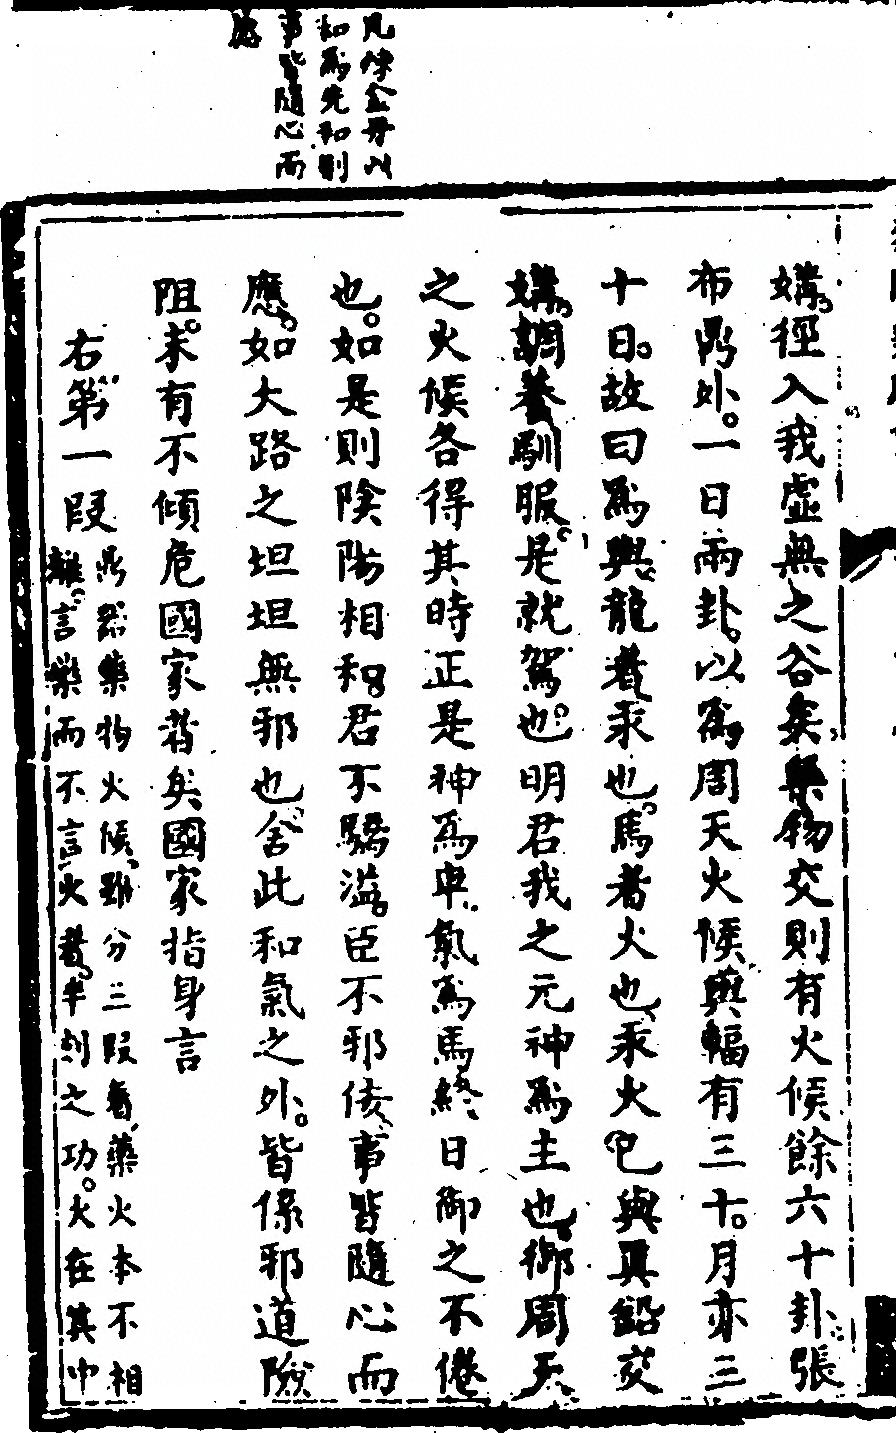 凡煉金丹以
和為先和則
事皆隨心而
應
媾徑入我虛無之谷矣藥物交則有火候餘六十卦張
布鼎外一日兩卦以為周天火候輿輻有三十月亦三
十日故曰為輿龍者汞也馬者火也汞火已與真鉛交
媾調養馴服是就駕也明君我之元神為主也御周天
之火候各得其時正是神為車氣為馬終日御之不倦
也如是則陰陽相和君不驕溢臣不邪佞事皆隨心而
應如大路之坦坦無邪也舍此和氣之外皆係邪道險
阻未有不傾危國家者矣國家指身言
右第一段
鼎器藥物火候雖分三段看藥火本不相
離言藥而不言火者半刻之功火在其中